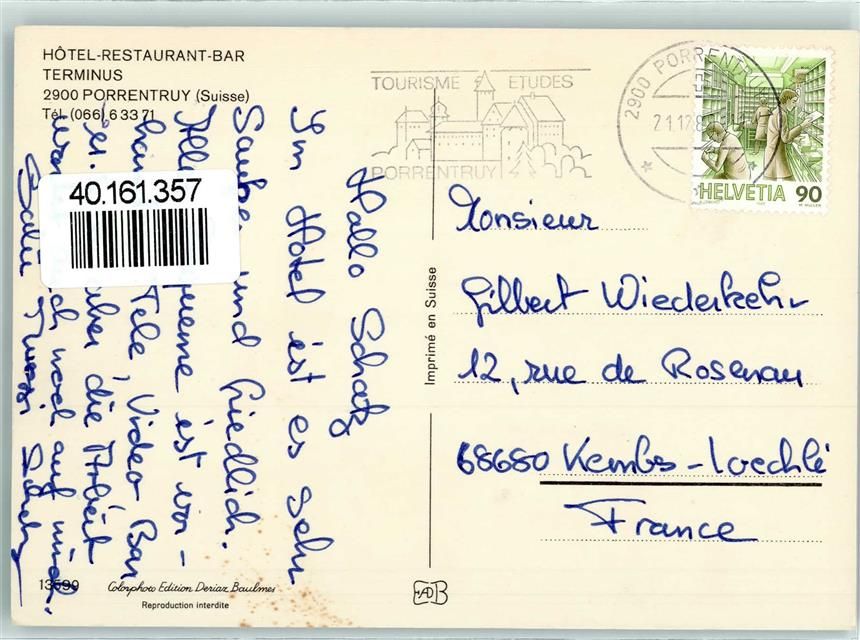 HÔTEL-RESTAURANT-BAR
TERMINUS
2900 PORRENTRUY (Suisse)
Tél. (066) 6 33 71
TOURISME ETUDES
PORRENTRUY
2900 PORRENT
21.12.8
HELVETIA 90
40.161.357
Hallo Schatz
Im Hotel ist es sehr
und friedlich.
ist vor-
Tele, Video Bar
die Arbeit
noch auf mich.
Salü
Imprimé en Suisse
Monsieur
Gilbert Wiederkehr
12, rue de Rosenau
68680 Kembs-Loechlé
France
13599 Colorphoto Edition Deriaz Baulmes
Reproduction interdite